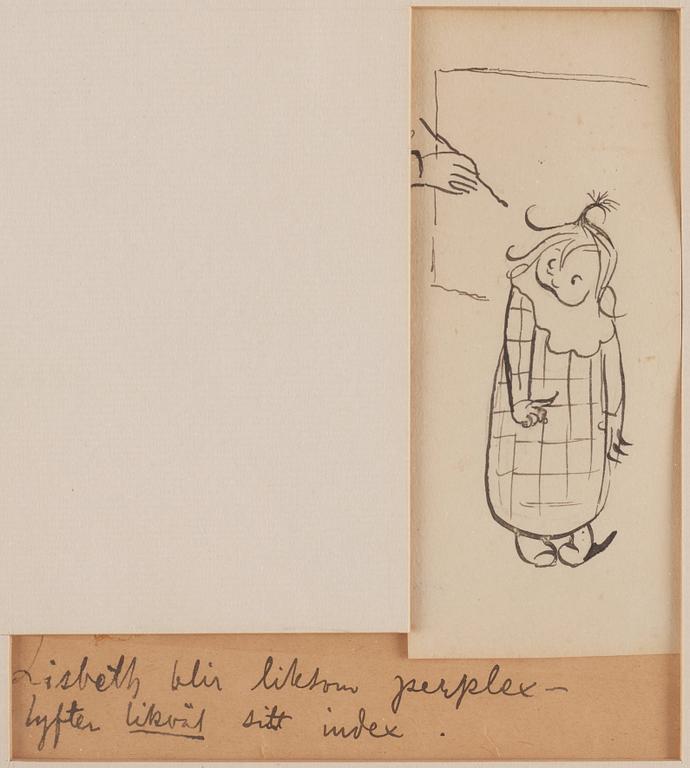 Lisbeth blir liksom perplex –
lyfter likväl sitt index .